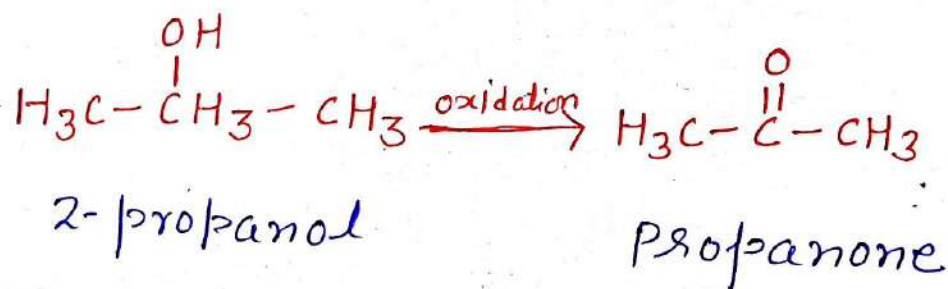 OH
H3C - CH3 - CH3 oxidation H3C - C - CH3
O
2-propanol propanone